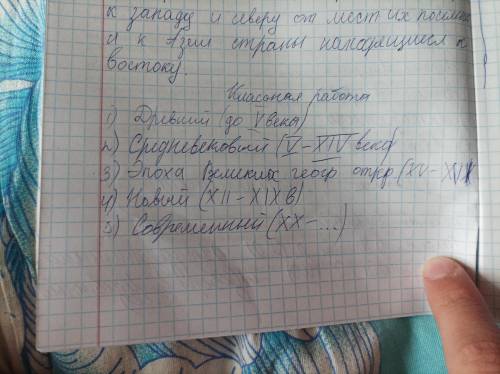 к западу и северу от мест их посел
и к Азии страны находящиеся к
востоку.
Классная работа
1) Древний (до V века)
2) Средневековий (V-XIV века)
3) Эпоха Великих геогр откр (XV-XVI
4) Новый (XII-XIXв)
5) Современный (XX-...)